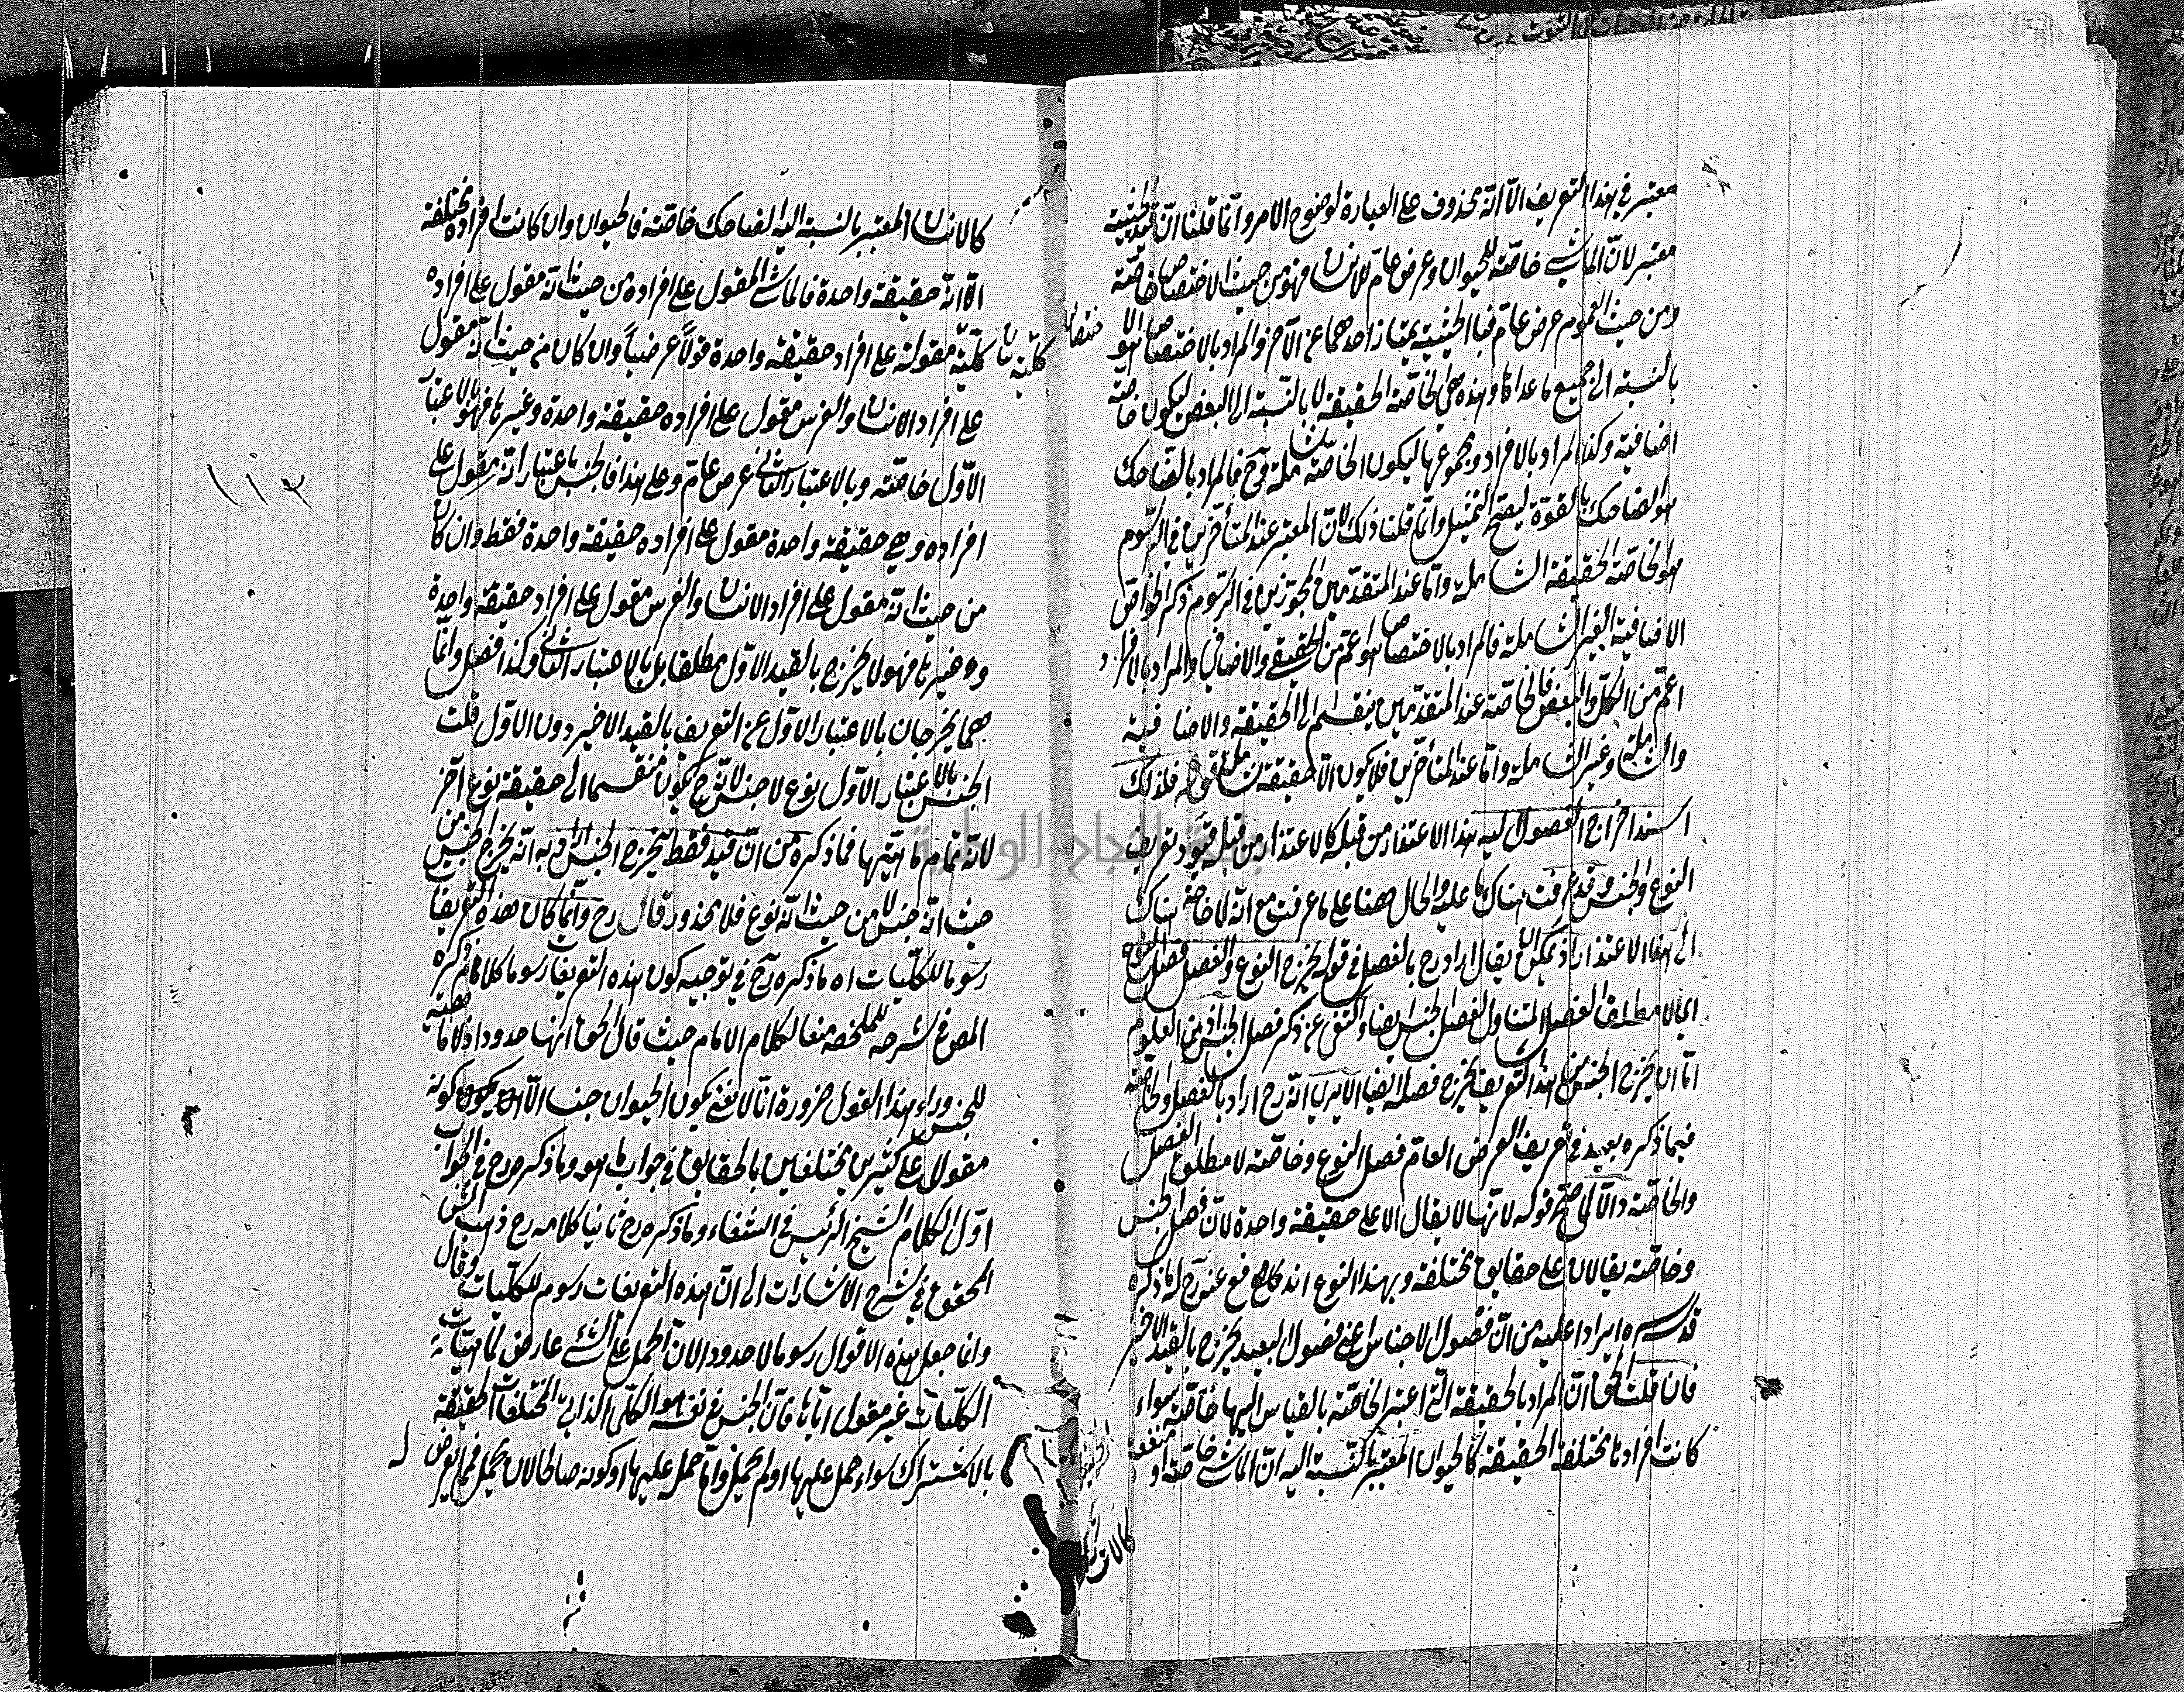 معتبر في هذا التعريف الا انه محذوف على العبارة لوضوح الامر وانما قلنا ان قيد الحيثية
معتبر لان الماشي خاصة للحيوان وعرض عام للانسان فهو من حيث الاختصاص خاصة
ومن حيث العموم عرض عام فبالحيثية يمتاز احدهما عن الآخر والمراد بالاختصاص هو
بالنسبة الى جميع ما عداها وهذه هي الخاصة الحقيقية لا بالنسبة الى البعض ليكون خاصة
اضافية وكذا المراد بالافراد مجموعها ليكون الخاصة شاملة فح فالمراد بالضاحك
هو الضاحك بالقوة ليصح التمثيل وانما قلنا ذلك لان المعتبر عند المتأخرين في الرسوم
هو الخاصة الحقيقة الشاملة واما عند المتقدمين المجوزين في الرسوم ذكر الخواص
الاضافية الغير الشاملة فالمراد بالاختصاص هو اعم من الحقيقي والاضافي والمراد بالافراد
اعم من الكل والبعض فالخاصة عند المتقدمين ينقسم الى الحقيقة والاضافية
والشاملة وغير الشاملة واما عند المتأخرين فلا يكون الا حقيقة شاملة قوله فلذلك
اسند اخراج الفصول اليه هذا الاعتذار من قبله كالاعتذار من قبله قيود تعريف
النوع والجنس وقد عرفت هناك ما عليه والحال ههنا على ما عرفت مع انه لا حاجة هناك
الى هذا الاعتذار اذ يمكن ان يقال اراد رح بالفصل في قوله يخرج النوع والفصل فصل النوع
اي لا مطلق الفصل المتناول لفصل الجنس ايضا واكتفى عن ذكر فصل الجنس اذ من المعلوم
انه ان يخرج الجنس عن هذا التعريف يخرج فصله ايضا الا يرى انه رح اراد بالفصل والخاصة
فيما ذكره بعيد في تعريف العرض العام فصل النوع وخاصته لا مطلق الفصل
والخاصة والا لما صح قوله لانها لا يقال الا على حقيقة واحدة لان فصل الجنس
وخاصته يقالان على حقايق مختلفة وبهذا النوع اندفع عنه رح ما ذكره
قدس سره ايرادا عليه من ان فصول الاجناس اعني فصول البعيد يخرج بالقيد الاخير
فان قلت الحق ان المراد بالحقيقة التي اعتبر الخاصة بالقياس اليها خاصة سواء
كانت افرادها مختلفة الحقيقة كالحيوان المعتبر بالنسبة اليه ان الماشي خاصة او متفقة
كالانسان
كالانسان المعتبر بالنسبة اليه الضاحك خاصة فالحيوان وان كانت افراده مختلفة
الا انه حقيقة واحدة فالماشي المقول على افراده من حيث انه مقول على افراده
كلية مقولة على افراد حقيقة واحدة قولا عرضيا وان كان من حيث انه مقول
على افراد الانسان والفرس مقول على افراده حقيقة واحدة وغيرها فهو بالاعتبار
الاول خاصة وبالاعتبار الثاني عرض عام وعلى هذا فالجنس باعتبار انه مقول على
افراده وهي حقيقة واحدة مقول على افراده حقيقة واحدة فقط وان كان
من حيث انه مقول على افراد الانسان والفرس مقول على افراد حقيقة واحدة
وغيرها فهو لا يخرج بالقيد الاول مطلقا بل بالاعتبار الثاني وكذا فصله وانما
هما يخرجان بالاعتبار الاول عن التعريف بالقيد الاخير دون الاول قلت
الجنس بالاعتبار الاول نوع لا جنس لانه ح يكون منقسما الى حقيقة نوع آخر
لانه تمام ماهيتها فما ذكره من ان قيد فقط يخرج الجنس اراد به انه يخرج الجنس من
حيث انه جنس لا من حيث انه نوع فلا محذور قال رح وانما كان هذه التعريفات
رسوما للكليات اه ما ذكره رح في توجيه كون هذه التعريفات رسوما كلام ذكره
المص في شرحه للملخص منعا لكلام الامام حيث قال الحق انها حدود اذ لا ماهية
للجنس وراء هذا القول ضرورة انا لا نعني بكون الحيوان جنسا الا ان يكون كونه
مقولا على كثيرين مختلفين بالحقايق في جواب ما هو وما ذكره رح في الجواب
اول الكلام الشيخ الرئيس في الشفاء وما ذكره رح ثانيا كلامه رح ذهب
المحقق في شرح الاشارات الى ان هذه التعريفات رسوم للكليات وقال
وانما جعل هذه الاقوال رسوما لا حدودا لان الحمل على الشيء عارض لماهيات
الكليات غير مقول اياها فان الجنس في نفسه هو الكلي الذاتي لمختلفات الحقيقة
بالاشتراك سواء حمل عليها او لم يحمل وانما حمل عليها او كونه صالحا لان يحمل فمما يعرض